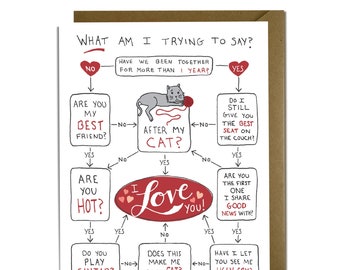 WHAT AM I TRYING TO SAY?
NO
HAVE WE BEEN TOGETHER
FOR MORE THAN 1 YEAR?
YES
ARE YOU
MY
BEST
FRIEND?
NO
AFTER MY
CAT?
NO
DO I
STILL
GIVE YOU
THE BEST
SEAT ON
THE COUCH?
YES
NO
NO
YES
ARE
YOU
HOT?
I Love
YOU!
ARE YOU
THE FIRST
ONE I
SHARE
GOOD
NEWS WITH?
YES
NO
YES
YES
NO
YES
DO YOU
PLAY
NO
DOES THIS
MAKE ME
NO
HAVE I LET
YOU SEE ME